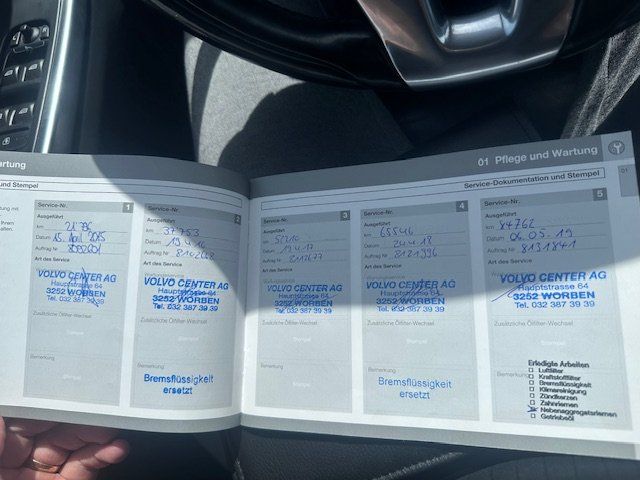 artung
und Stempel
01 Pflege und Wartung
Service-Dokumentation und Stempel
01
Service-Nr. 1
Ausgeführt
km 21796
Datum 15. April 2015
Auftrag Nr
Art des Service
VOLVO CENTER AG
Hauptstrasse 64
3252 WORBEN
Tel. 032 387 39 39
Zusätzliche Ölfilter-Wechsel
Stempel
Bemerkung
Service-Nr. 2
Ausgeführt
km 37753
Datum 19.4.16
Auftrag Nr
Art des Service
VOLVO CENTER AG
Hauptstrasse 64
3252 WORBEN
Tel. 032 387 39 39
Zusätzliche Ölfilter-Wechsel
Bemerkung
Bremsflüssigkeit
ersetzt
Service-Nr. 3
Ausgeführt
km 52210
Datum 19.4.17
Auftrag Nr
Art des Service
VOLVO CENTER AG
Hauptstrasse 64
3252 WORBEN
Tel. 032 387 39 39
Zusätzliche Ölfilter-Wechsel
Stempel
Bemerkung
Service-Nr. 4
Ausgeführt
km 65546
Datum 24.4.18
Auftrag Nr 8121396
Art des Service
VOLVO CENTER AG
Hauptstrasse 64
3252 WORBEN
Tel. 032 387 39 39
Zusätzliche Ölfilter-Wechsel
Bemerkung
Bremsflüssigkeit
ersetzt
Service-Nr. 5
Ausgeführt
km 84762
Datum 06.05.19
Auftrag Nr 8131841
Art des Service
VOLVO CENTER AG
Hauptstrasse 64
3252 WORBEN
Tel. 032 387 39 39
Zusätzliche Ölfilter-Wechsel
Stempel
Bemerkung
Erledigte Arbeiten
Luftfilter
Kraftstofffilter
Bremsflüssigkeit
Klimareinigung
Zündkerzen
Zahnriemen
Nebenaggregatsriemen
Getriebeöl